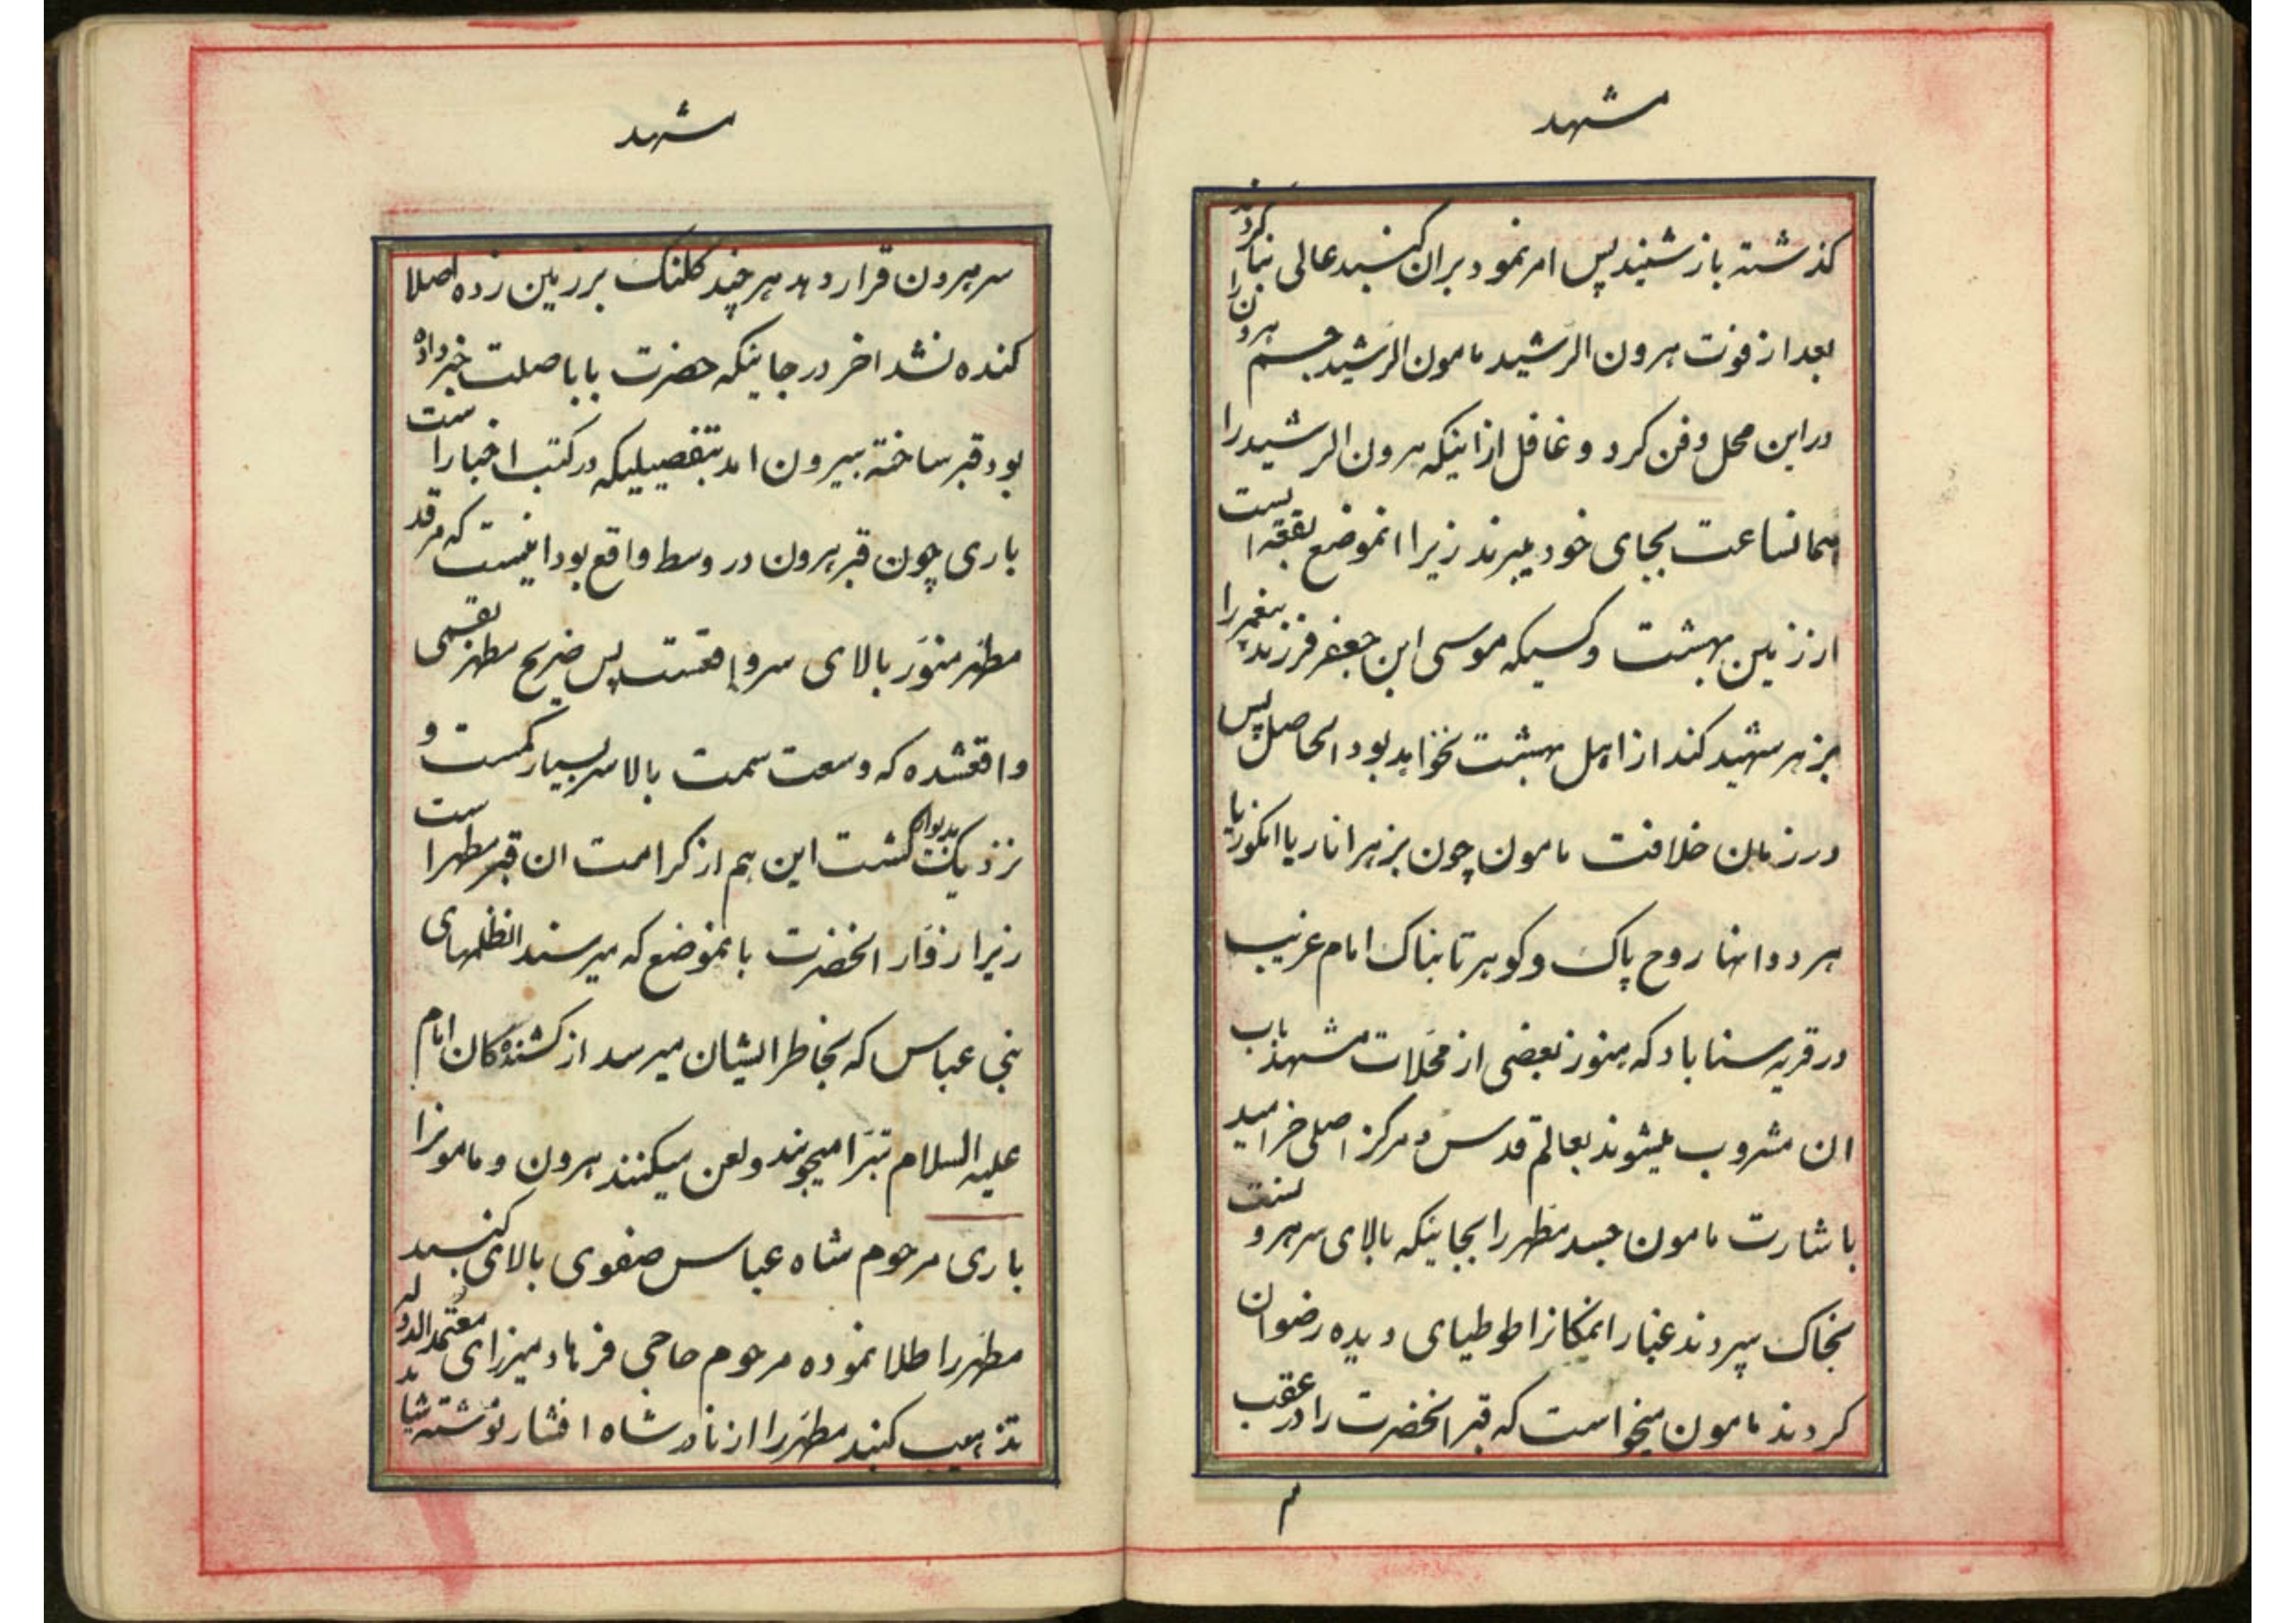 مشهد
کذشته باز شنید پس امر نمود بران کنبد عالی بنا کردند
بعد از فوت هرون الرشید مامون الرشید جسم هرون را
در این محل دفن کرد و غافل از اینکه هرون الرشید را
همانساعت بجای خود میبرند زیرا انموضع بقعه ایست
از زمین بهشت و کسیکه موسی ابن جعفر فرزند پیغمبر را
بزهر شهید کند از اهل بهشت نخواهد بود الحاصل پس
در زمان خلافت مامون چون بزهر انار یا انکور یا
هر دو انها روح پاک و کوهر تابناک امام غریب
در قریه سناباد که هنوز بعضی از محلات مشهد باب
ان مشروب میشوند بعالم قدس و مرکز اصلی خرامید
باشارت مامون جسد مطهر را بجاییکه بالای سر هرو نست
بخاک سپردند غبار انمکانرا طوطیای دیده رضوان
کردند مامون میخواست که قبر انحضرت را در عقب
م
مشهد
سر هرون قرار دهد هر چند کلنک بر زمین زده اصلا
کنده نشد اخر در جاییکه حضرت بابا صلت خبر داده
بود قبر ساخته بیرون امد بتفصیلیکه در کتب اخبار است
باری چون قبر هرون در وسط واقع بود اینست که مرقد
مطهر منور بالای سر واقعست پس ضریح مطهر بقسمی
واقعشده که وسعت سمت بالاسر بسیار کمست و
نزدیک بدیوار کشت این هم از کرامت ان قبر مطهر است
زیرا زوار انحضرت بانموضع که میرسند انظلمهای
بنی عباس که بخاطر ایشان میرسد از کشنده کان امام
علیه السلام تبرا میجویند و لعن میکنند هرون و مامونرا
باری مرحوم شاه عباس صفوی بالای کنبد
مطهر را طلا نموده مرحوم حاجی فرهاد میرزای معتمد الدوله
تذهیب کنبد مطهر را از نادر شاه افشار نوشته شاید